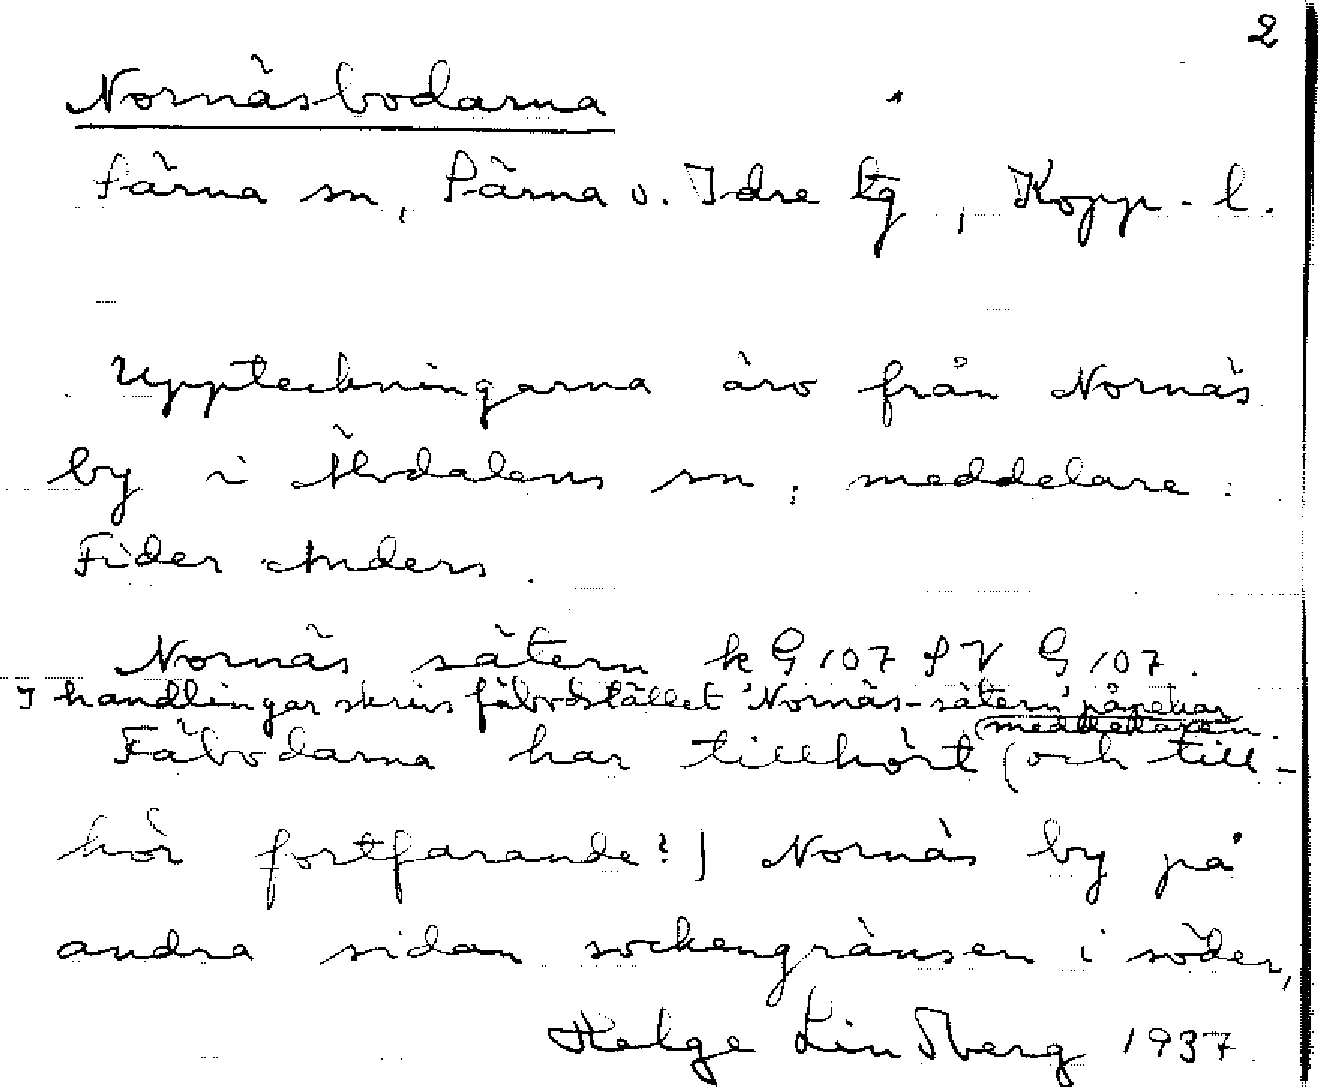 2
Nornäsbodarna
Särna sn, Särna o. Idre tg, Kopp. l.
Uppteckningarna äro från Nornäs
by i Älvdalens sn; meddelare:
Fider Anders.
Nornäs sätern k G 107 SV G 107.
I handlingar skrivs fäbodstället 'Nornäs-sätern' påpekar
meddelaren.
Fäbodarna har tillhört (och till-
hör fortfarande?) Nornäs by på
andra sidan sockengränsen i söder,
Helge Lindberg 1937